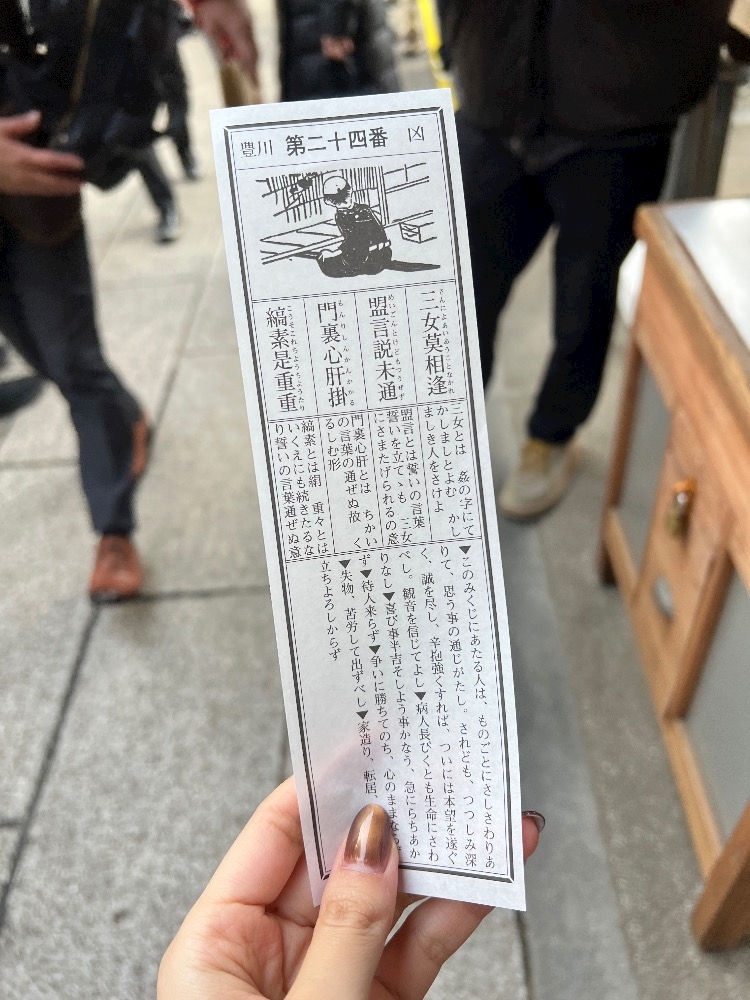 豊川 第二十四番 凶
三女莫相逢
さんによあいあうことなかれ
盟言説未通
めいごんとけどもつうぜず
門裏心肝掛
もんりしんかんかかる
縞素是重重
こうそこれちようちようたり
三女とは 姦の字にて
かしましとよむ かし
ましき人をさけよ
盟言とは誓いの言葉
誓いを立てゝも 三女
にさまたげられるの意
門裏心肝とは ちかい
の言葉の通ぜぬ故 く
るしむ形
縞素とは絹 重々とは
いくえにも続きたるな
り誓いの言葉通ぜぬ意
▼このみくじにあたる人は、ものごとにさしさわりあ
りて、思う事の通じがたし。されども、つつしみ深
く、誠を尽し、辛抱強くすれば、ついには本望を遂ぐ
べし。観音を信じてよし▼病人長びくとも生命にさわ
りなし▼喜び事半吉そしよう事かなう、急にらちあか
ず▼待人来らず▼争いに勝ちてのち、心のままならず
▼失物、苦労して出ずべし▼家造り、転居、
立ちよろしからず